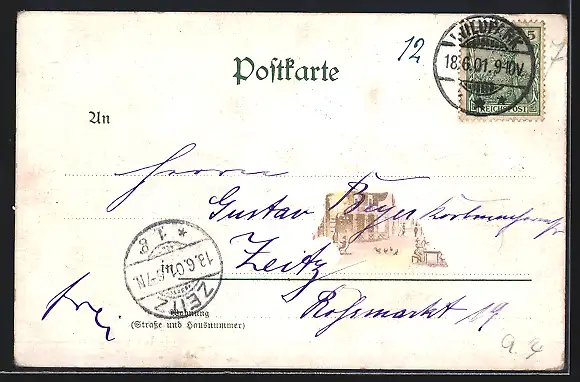 12
Postkarte
WILDPARK
18.6.01. 9-10V.
5
REICHSPOST
7
An
Herrn
Gustav Beyer
Zeitz
in
Roßmarkt 19
frei
ZEITZ
18.6.01. 6-7N.
* 1 g
Wohnung
(Straße und Hausnummer)
a. 4